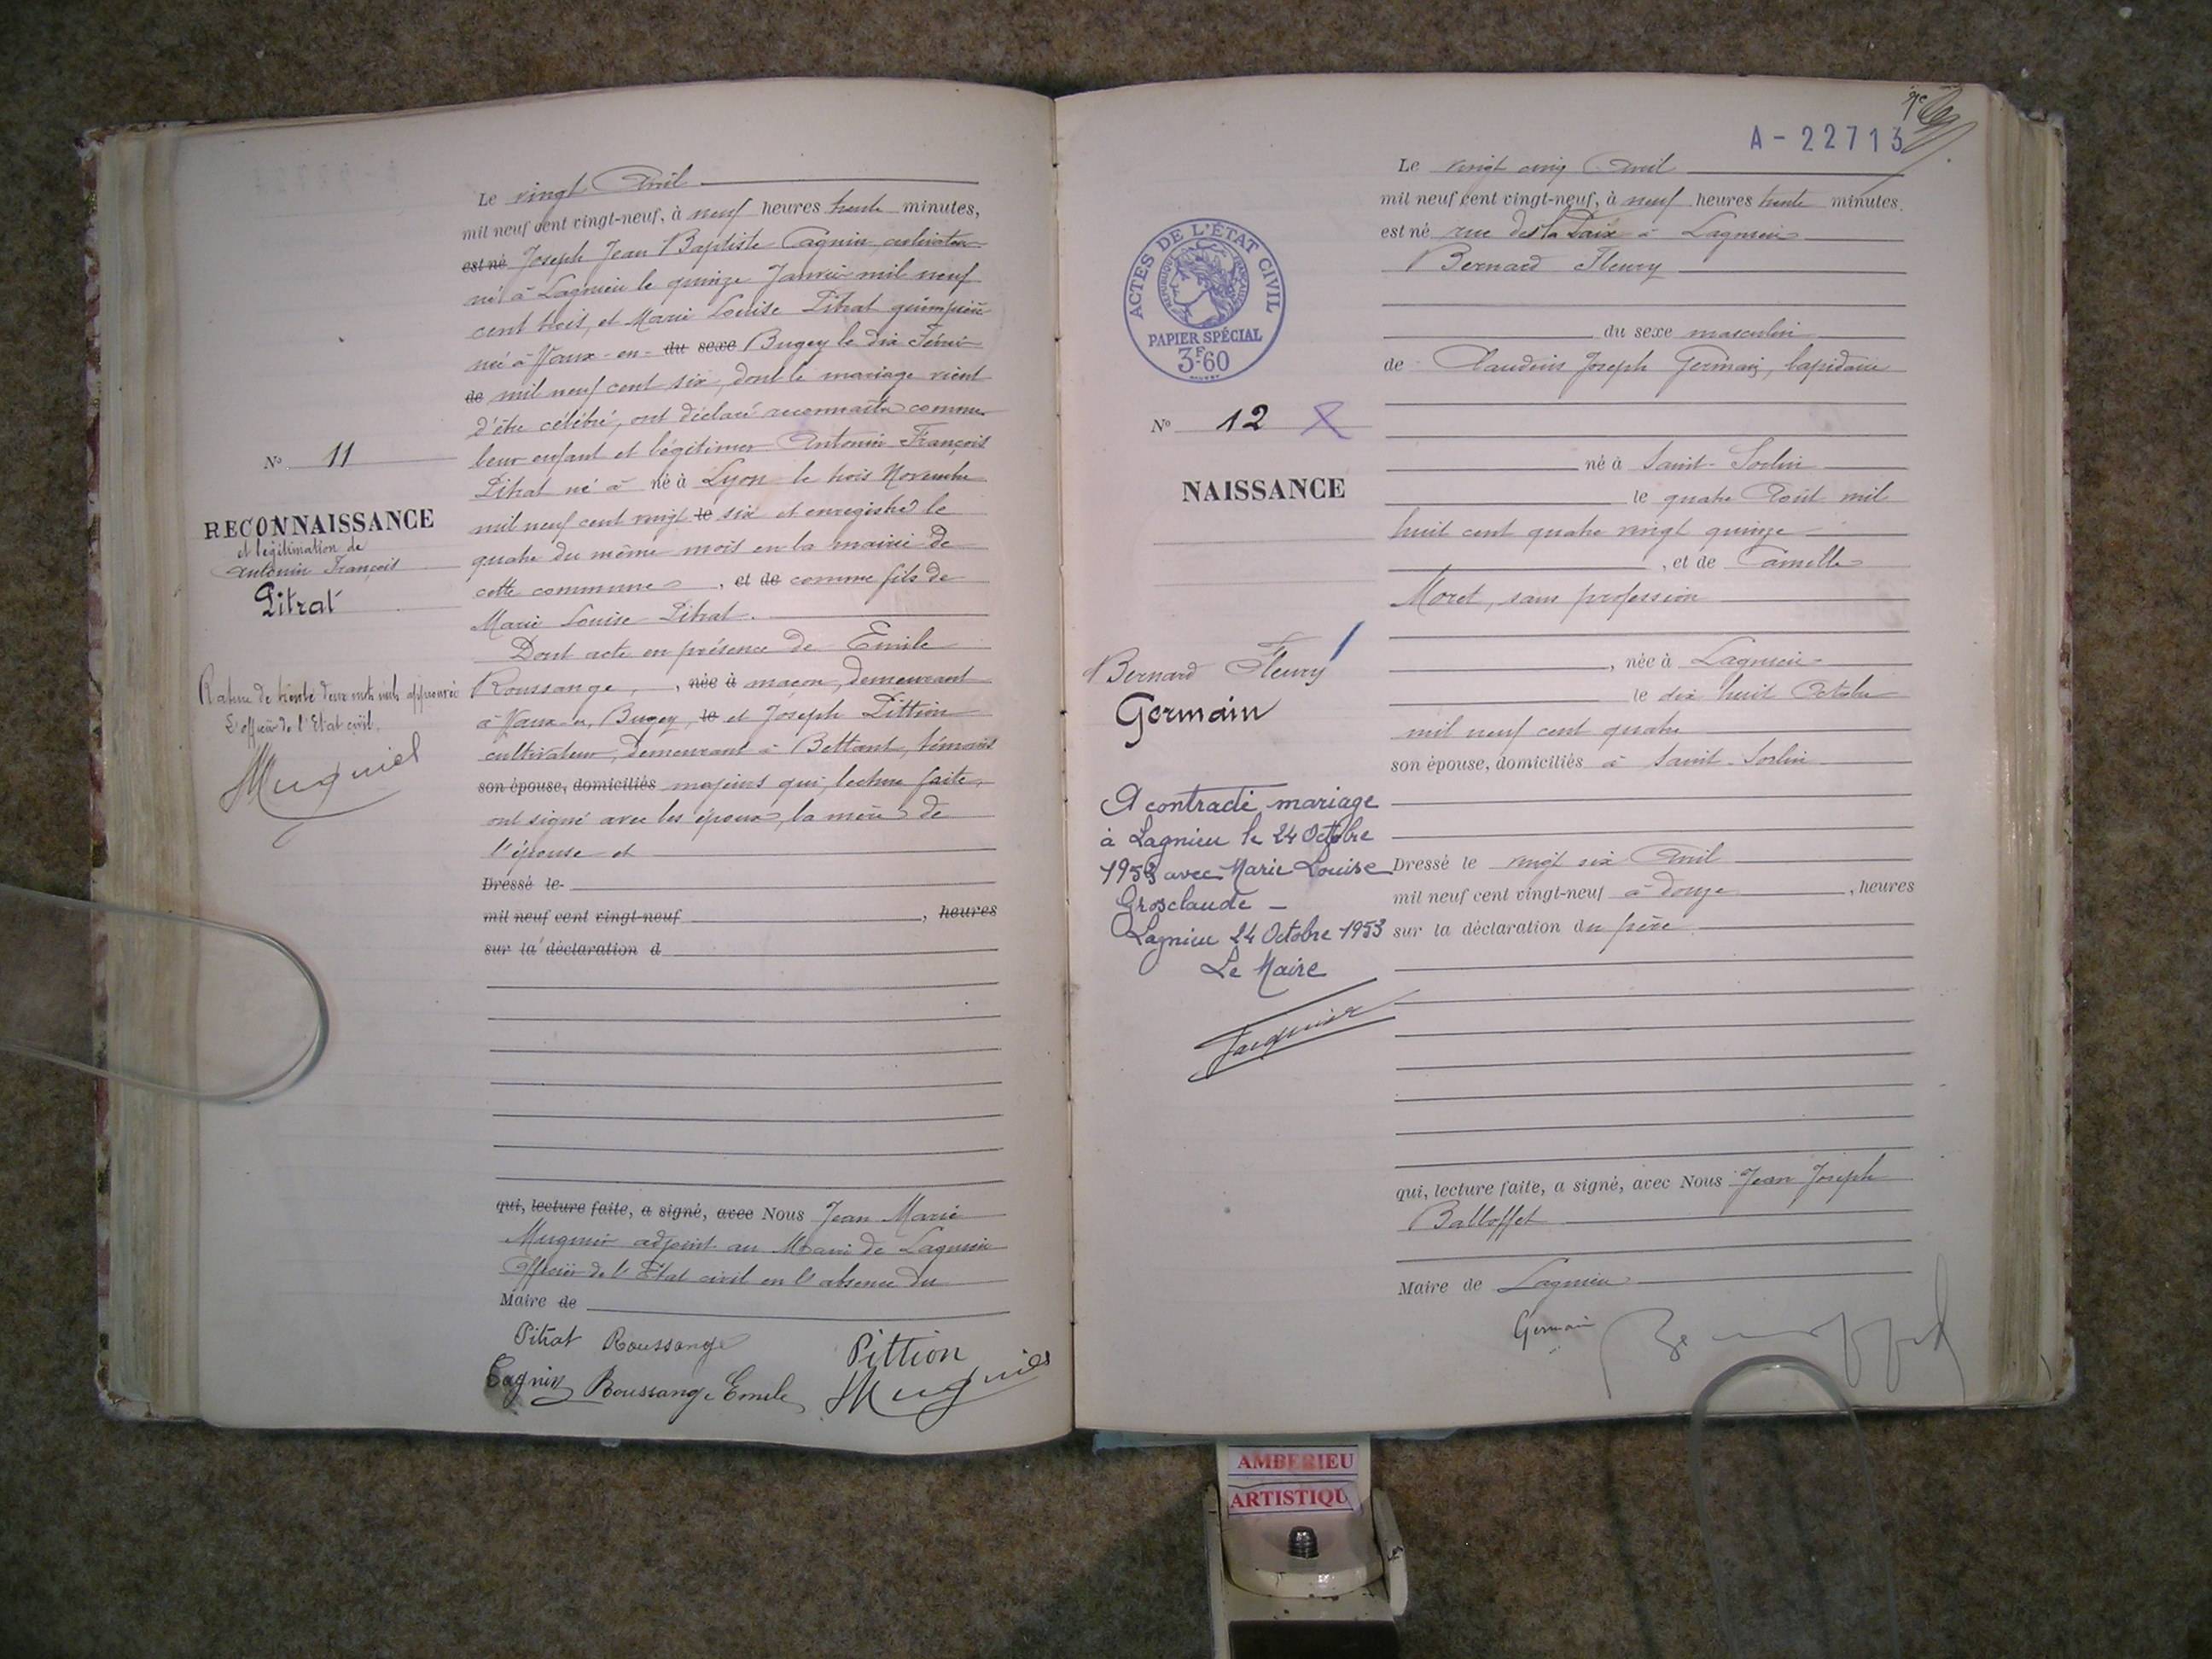 Le vingt Avril
mil neuf cent vingt-neuf, à neuf heures trente minutes,
est né Joseph Jean Baptiste Cagnin, cultivateur
né à Lagnieu le quinze Janvier mil neuf
cent trois, et Marie Louise Pitrat guimpière
née à Vaux-en- du sexe Bugey le dix Février
de mil neuf cent six, dont le mariage vient
d'être célébré, ont déclaré reconnaître comme
leur enfant et légitimer Antonin François
Pitrat né à né à Lyon le trois Novembre
mil neuf cent vingt le six et enregistré le
quatre du même mois en la mairie de
cette commune, et de comme fils de
Marie Louise Pitrat.
Dont acte en présence de Emile
Roussange, née à maçon, demeurant
à Vaux en Bugey, le et Joseph Pittion
cultivateur, demeurant à Bettant, témoins
son épouse, domiciliés majeurs qui, lecture faite,
ont signé avec les époux, la mère de
l'épouse et
Dressé le
mil neuf cent vingt-neuf , heures
sur la déclaration d
qui, lecture faite, a signé, avec Nous Jean Marie
Mugnier adjoint au Maire de Lagnieu
Officier de l'Etat civil en l'absence du
Maire de
Pitrat Roussange Pittion
Cagnin Roussange Emile Mugnier
No 11
RECONNAISSANCE
et légitimation de
Antonin François
Pitrat
Rature de trente deux mots nuls approuvée
L'officier de l'Etat civil.
Mugnier
A-22713
Le vingt cinq Avril
mil neuf cent vingt-neuf, à neuf heures trente minutes,
est né rue de la Paix à Lagnieu
Bernard Fleury
du sexe masculin
de Claudius Joseph Germain, lapidaire
né à Saint-Sorlin
le quatre Août mil
huit cent quatre vingt quinze
, et de Camille
Moret, sans profession
, née à Lagnieu
le dix huit Octobre
mil neuf cent quatre
son épouse, domiciliés à Saint-Sorlin
Dressé le vingt six Avril
mil neuf cent vingt-neuf à douze , heures
sur la déclaration du père
qui, lecture faite, a signé, avec Nous Jean Joseph
Balloffet
Maire de Lagnieu
Germain
ACTES DE L'ÉTAT CIVIL
RÉPUBLIQUE FRANÇAISE
PAPIER SPÉCIAL
3F60
No 12
NAISSANCE
Bernard Fleury
Germain
A contracté mariage
à Lagnieu le 24 Octobre
1953 avec Marie Louise
Grosclaude -
Lagnieu 24 Octobre 1953
Le Maire
AMBERIEU
ARTISTIQU